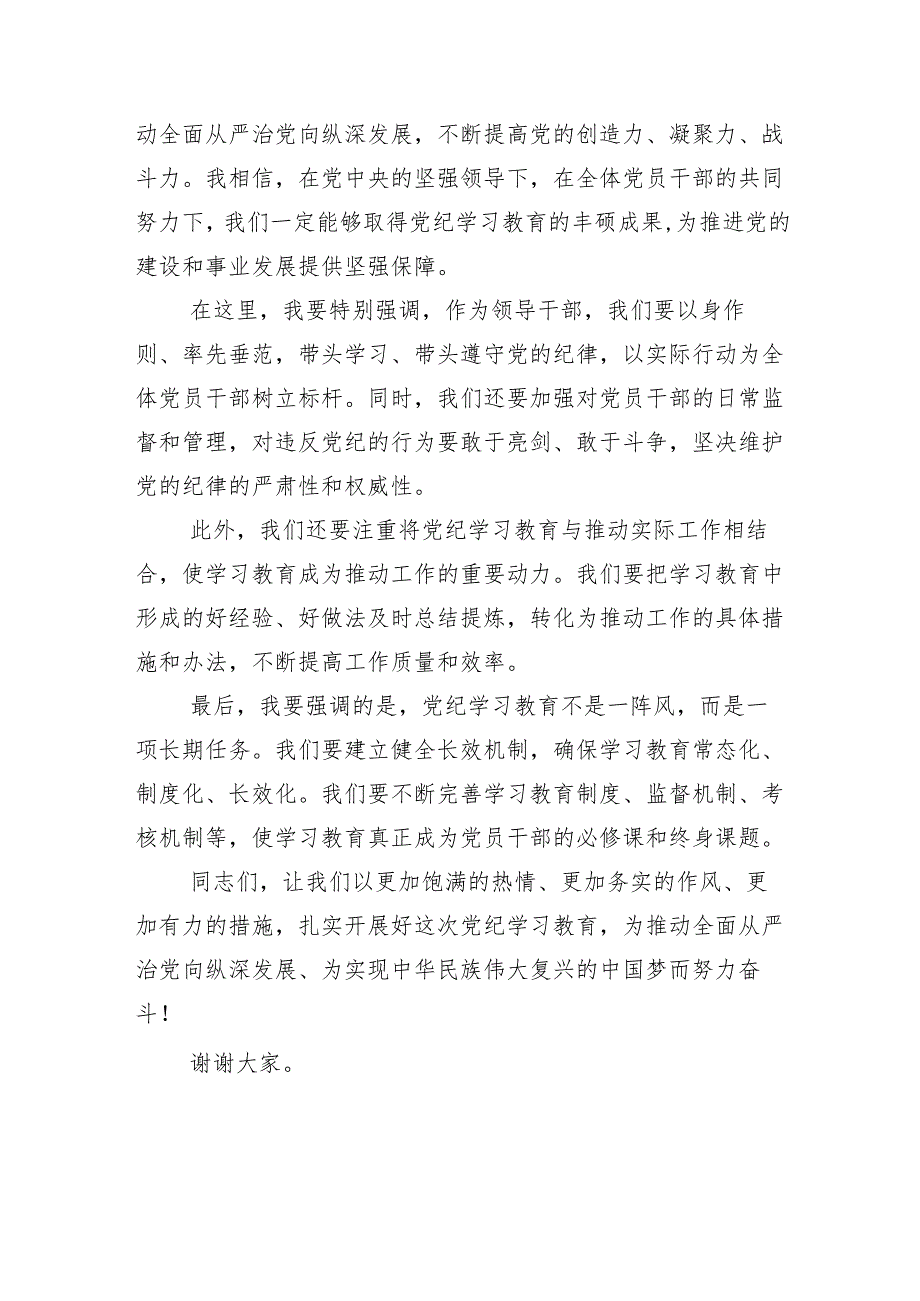 动全面从严治党向纵深发展，不断提高党的创造力、凝聚力、战
斗力。我相信，在党中央的坚强领导下，在全体党员干部的共同
努力下，我们一定能够取得党纪学习教育的丰硕成果,为推进党的
建设和事业发展提供坚强保障。
在这里，我要特别强调，作为领导干部，我们要以身作
则、率先垂范，带头学习、带头遵守党的纪律，以实际行动为全
体党员干部树立标杆。同时，我们还要加强对党员干部的日常监
督和管理，对违反党纪的行为要敢于亮剑、敢于斗争，坚决维护
党的纪律的严肃性和权威性。
此外，我们还要注重将党纪学习教育与推动实际工作相结
合，使学习教育成为推动工作的重要动力。我们要把学习教育中
形成的好经验、好做法及时总结提炼，转化为推动工作的具体措
施和办法，不断提高工作质量和效率。
最后，我要强调的是，党纪学习教育不是一阵风，而是一
项长期任务。我们要建立健全长效机制，确保学习教育常态化、
制度化、长效化。我们要不断完善学习教育制度、监督机制、考
核机制等，使学习教育真正成为党员干部的必修课和终身课题。
同志们，让我们以更加饱满的热情、更加务实的作风、更
加有力的措施，扎实开展好这次党纪学习教育，为推动全面从严
治党向纵深发展、为实现中华民族伟大复兴的中国梦而努力奋
斗！
谢谢大家。